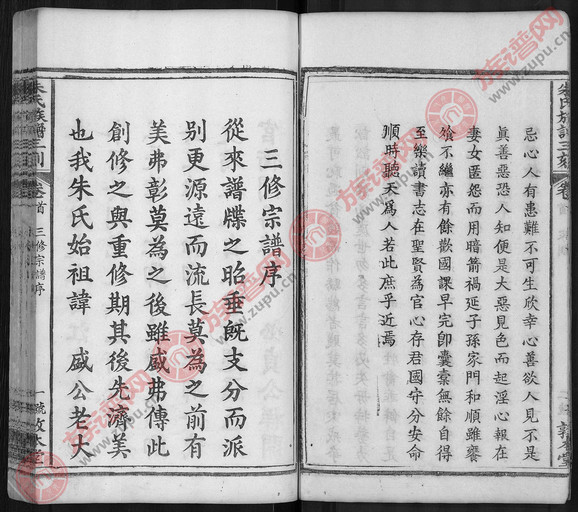 忌心人有患難不可生欣幸心善欲人見不是
眞善惡恐人知便是大惡見色而起淫心報在
妻女匿怨而用暗箭禍延子孫家門和順雖饔
飧不繼亦有餘歡國課早完卽囊橐無餘自得
至樂讀書志在聖賢為官心存君國守分安命
順時聽天為人若此庶乎近焉
三修宗譜序
從來譜牒之昭垂旣支分而派
別更源遠而流長莫為之前有
美弗彰莫為之後雖盛弗傳此
創修之與重修期其後先濟美
也我朱氏始祖諱 盛公老大
朱氏族譜三刻
卷首
三修宗譜序
一號敦本堂
族谱网
www.zupu.cn